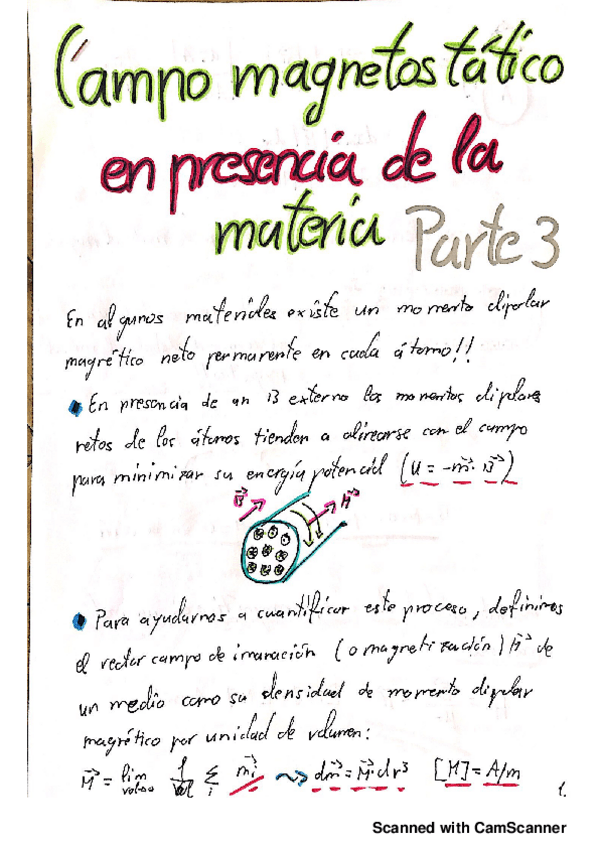 Campo magnetostático
en presencia de la
materia Parte 3
En algunos materiales existe un momento dipolar
magnético neto permanente en cada átomo!!
En presencia de un B externo los momentos dipolares
netos de los átomos tienden a alinearse con el campo
para minimizar su energía potencial (U = -m⃗·B⃗)
B⃗ M⃗
Para ayudarnos a cuantificar este proceso, definimos
el vector campo de imanación (o magnetización) M⃗ de
un medio como su densidad de momento dipolar
magnético por unidad de volumen:
M⃗ = lim vol→0 1/vol Σ i m⃗i ⇝ dm⃗ = M⃗·dr³ [M] = A/m 1.
Scanned with CamScanner